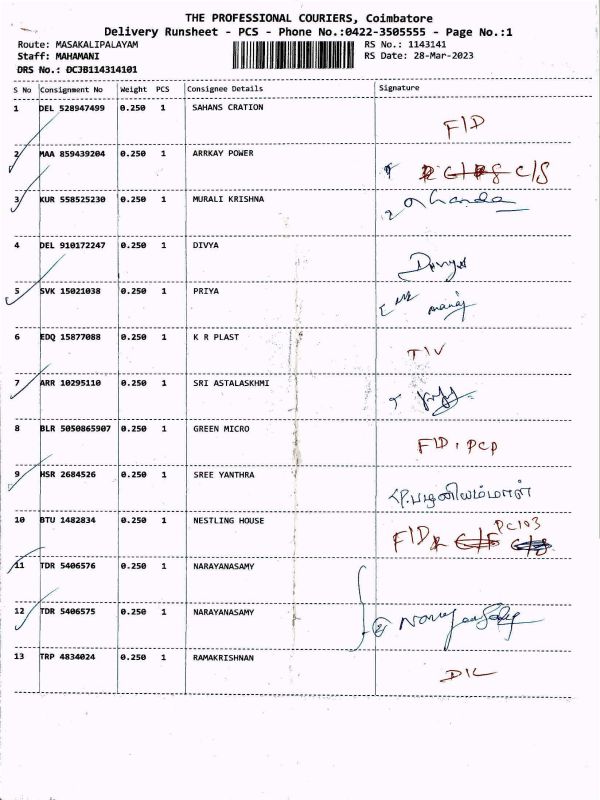 THE PROFESSIONAL COURIERS, Coimbatore
Delivery Runsheet - PCS - Phone No.:0422-3505555 - Page No.:1
Route: MASAKALIPALAYAM RS No.: 1143141
Staff: MAHAMANI RS Date: 28-Mar-2023
DRS No.: DCJB114314101
S No Consignment No Weight PCS Consignee Details Signature
1 DEL 528947499 0.250 1 SAHANS CRATION F/D
2 MAA 859439204 0.250 1 ARRKAY POWER C/S
3 KUR 558525230 0.250 1 MURALI KRISHNA
4 DEL 910172247 0.250 1 DIVYA Divya
5 SVK 15021038 0.250 1 PRIYA manoj
6 EDQ 15877088 0.250 1 K R PLAST T/V
7 ARR 10295110 0.250 1 SRI ASTALASKHMI
8 BLR 5050865907 0.250 1 GREEN MICRO F/D, PCP
9 HSR 2684526 0.250 1 SREE YANTHRA P.பழனியம்மாள்
10 BTU 1482834 0.250 1 NESTLING HOUSE F/D PC103
11 TDR 5406576 0.250 1 NARAYANASAMY
12 TDR 5406575 0.250 1 NARAYANASAMY
13 TRP 4834024 0.250 1 RAMAKRISHNAN D/L